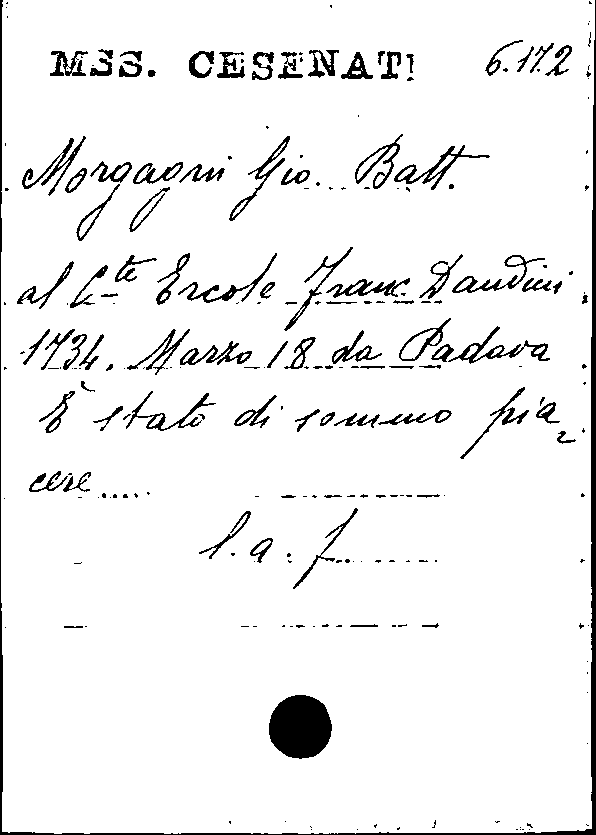 MSS. CESENATI 6.172
Morgagni Gio. Batt.
al C.te Ercole Franc. Dandini
1734. Marzo 18 da Padova
È stato di sommo pia
cere.....
l. a. f.